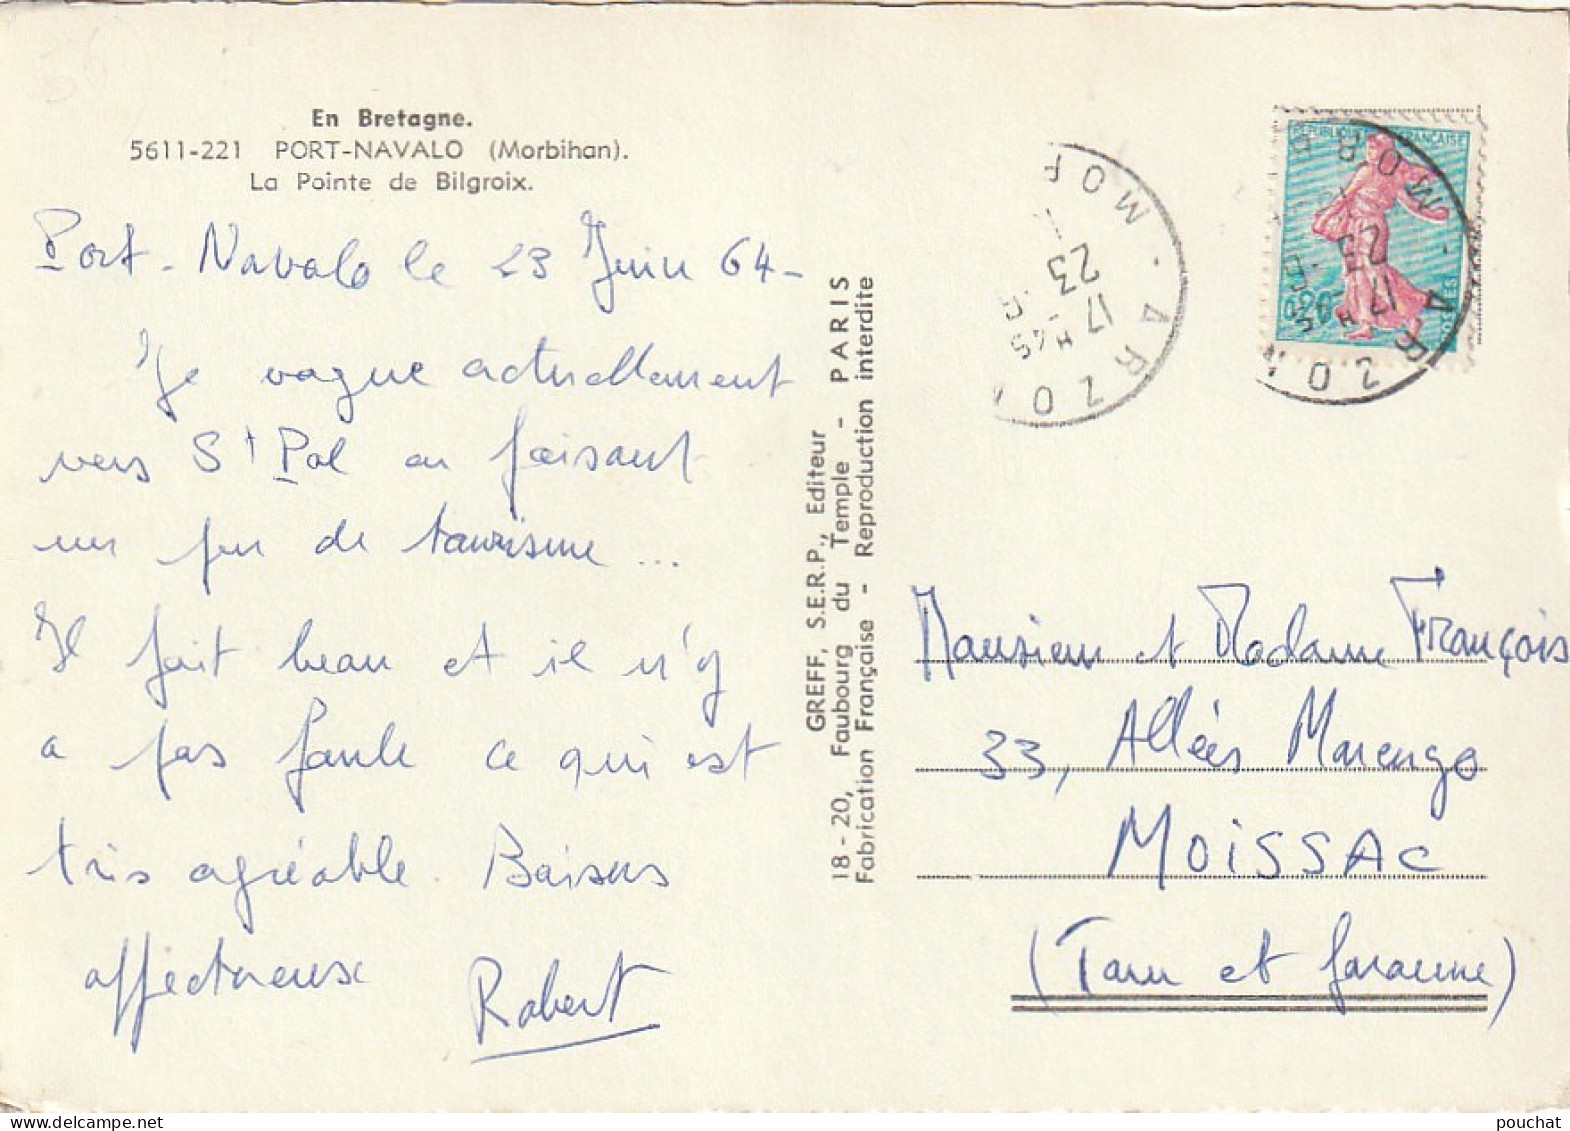 En Bretagne.
5611-221 PORT-NAVALO (Morbihan).
La Pointe de Bilgroix.
Port-Navalo le 23 Juin 64-
Je vogue actuellement
vers St Pol en faisant
un peu de tourisme...
Il fait beau et il n'y
a pas foule ce qui est
très agréable. Baisers
affectueux
Robert
GREFF, S.E.R.P., Editeur
18-20, Faubourg du Temple - PARIS
Fabrication Française - Reproduction interdite
MOR - ARZON
17 H45
23
REPUBLIQUE FRANÇAISE
0,20
POSTES
MOR - ARZON
17 H 45
23
Monsieur et Madame François
33, Allées Marengo
MOiSSAC
(Tarn et Garonne)
pouchat